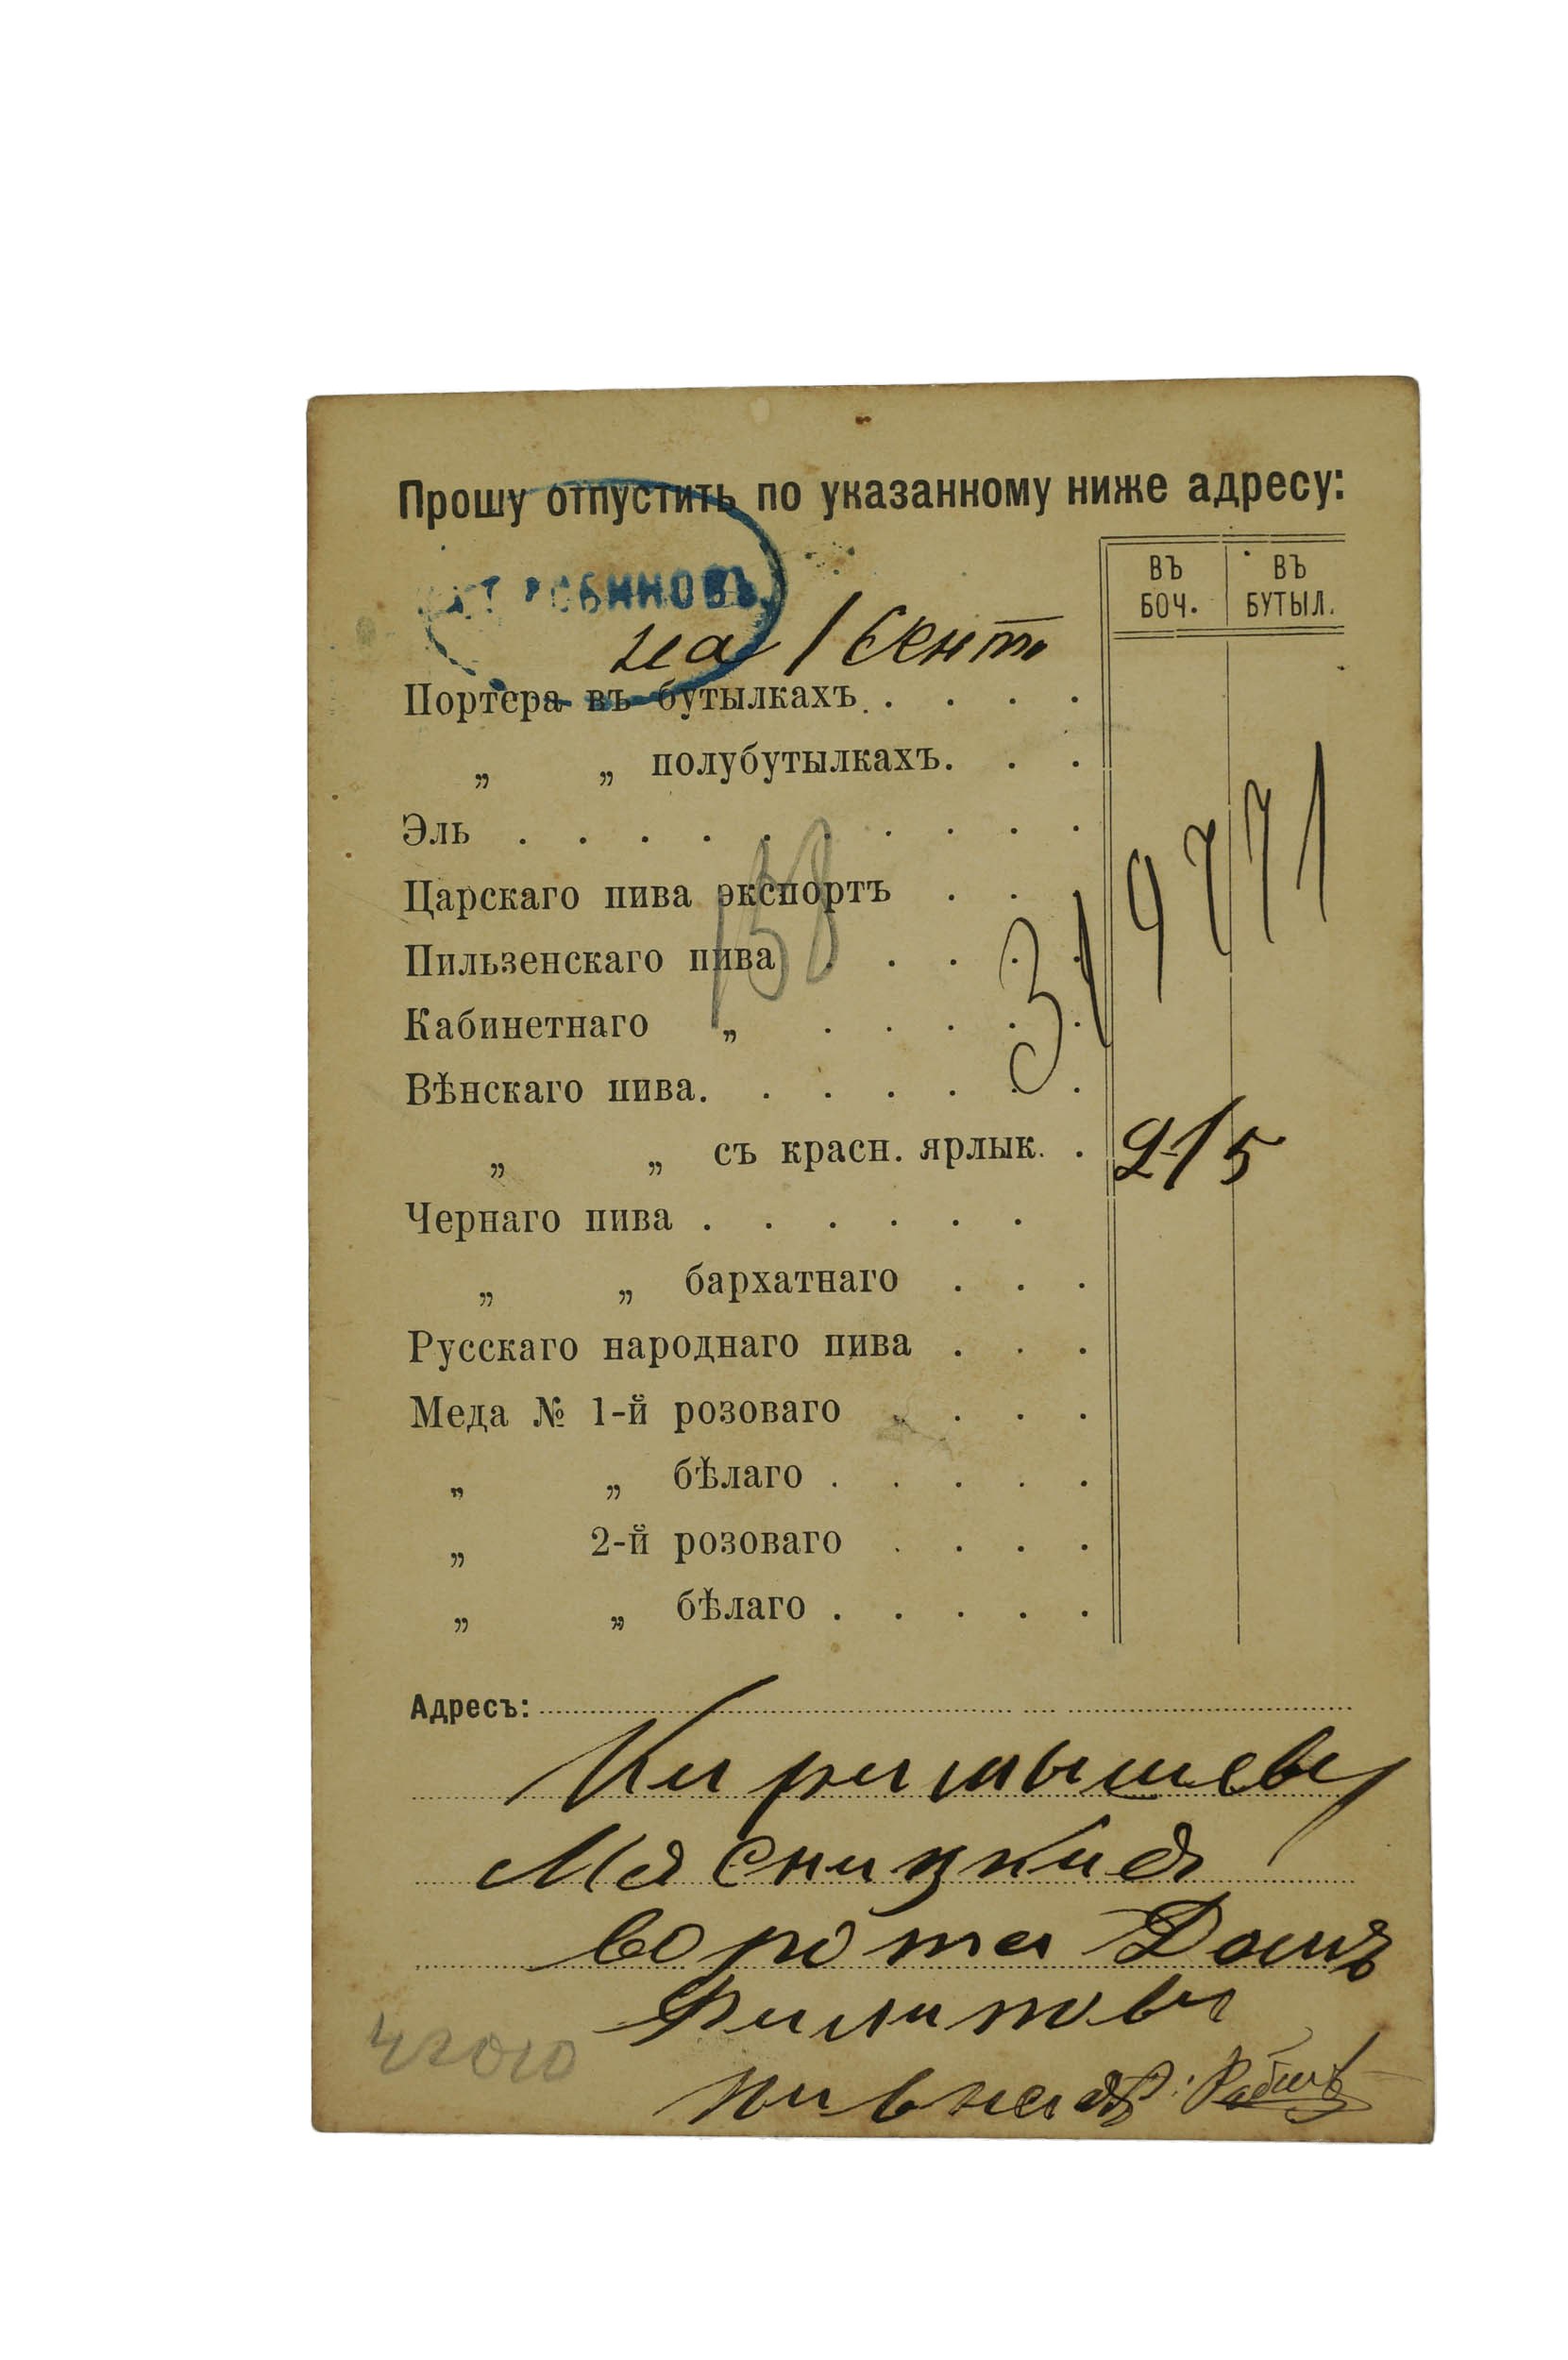 Прошу отпустить по указанному ниже адресу:
ВЪ БОЧ.
ВЪ БУТЫЛ.
на 1 Сент
Портера въ бутылкахъ . . . .
„ „ полубутылкахъ. . .
Эль . . . . . . . . . .
Царскаго пива экспортъ . . .
158
Пильзенскаго пива . . . . .
319771
Кабинетнаго „ . . . . .
Вѣнскаго пива. . . . . . .
„ „ съ красн. ярлык. . 2/5
Чернаго пива . . . . . .
„ „ бархатнаго . . .
Русскаго народнаго пива . . .
Меда № 1-й розоваго . . . .
„ „ бѣлаго . . . . .
„ 2-й розоваго . . . .
„ „ бѣлаго . . . . .
Адресъ:
Мясницкия
ворота Домъ
Филипова
пивная